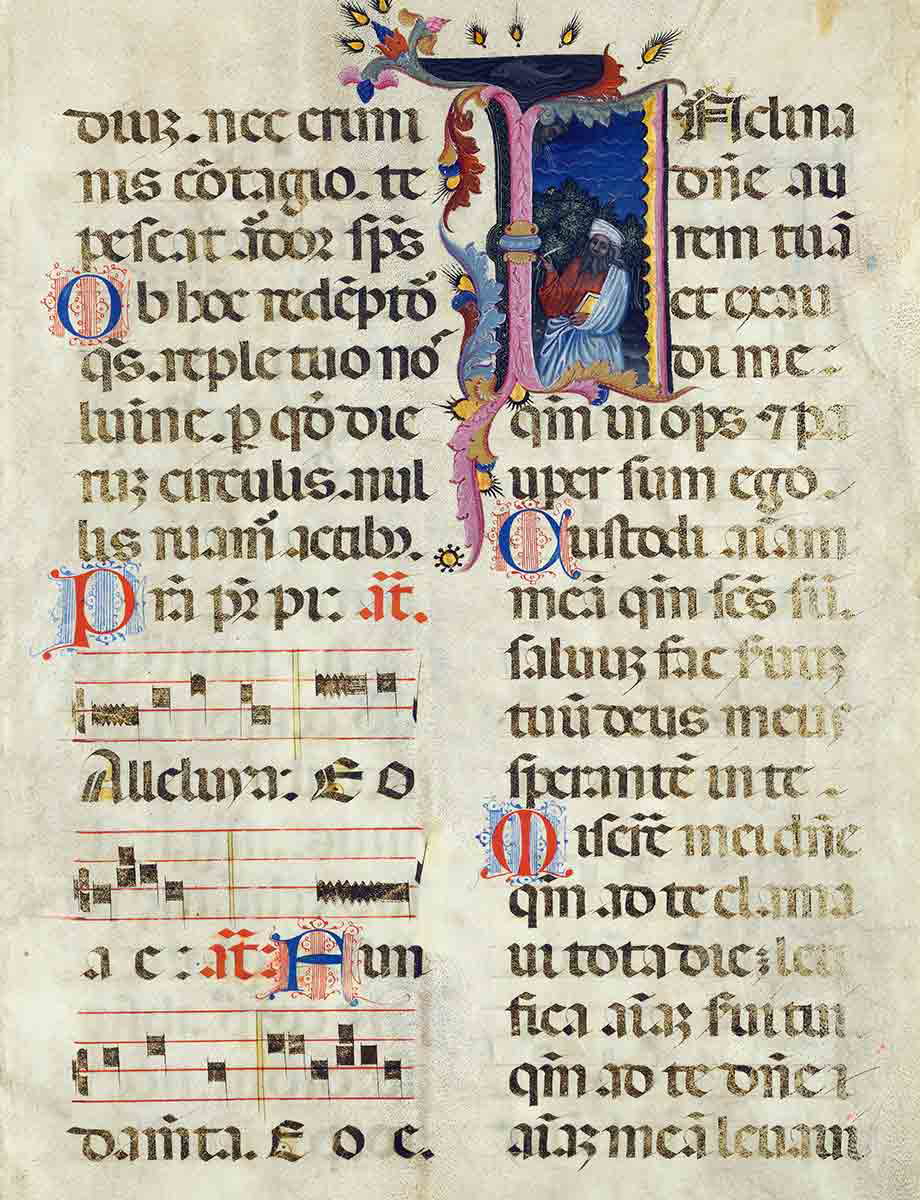 diuꝫ. nec crimi
nis cōtagio. te
pescat ādor sp̄s
Ob hoc redēptō
q̄s. reple tuo nō
lumīe. ꝑ qd̄ die
ruꝫ circulis. nul
lis ruam̄ actibꝫ.
Pr̄a pr̄ pi: an̄.
Alleluya: E O
a e : an̄: Fun
dam̄ta. E o e.
INclina
dn̄e au
rem tuā
et exau
di me :
qm̄ in ops ⁊ pa
uper sum ego.
Custodi aīam
meā qm̄ scs̄ sū.
saluuꝫ fac suuꝫ
tuū deus meus
sperantē in te.
Miserē mei dn̄e
qm̄ ad te clama
ui tota die: leti
fica aīaꝫ sui tui
qm̄ ad te dn̄e
aīaꝫ meā leuaui